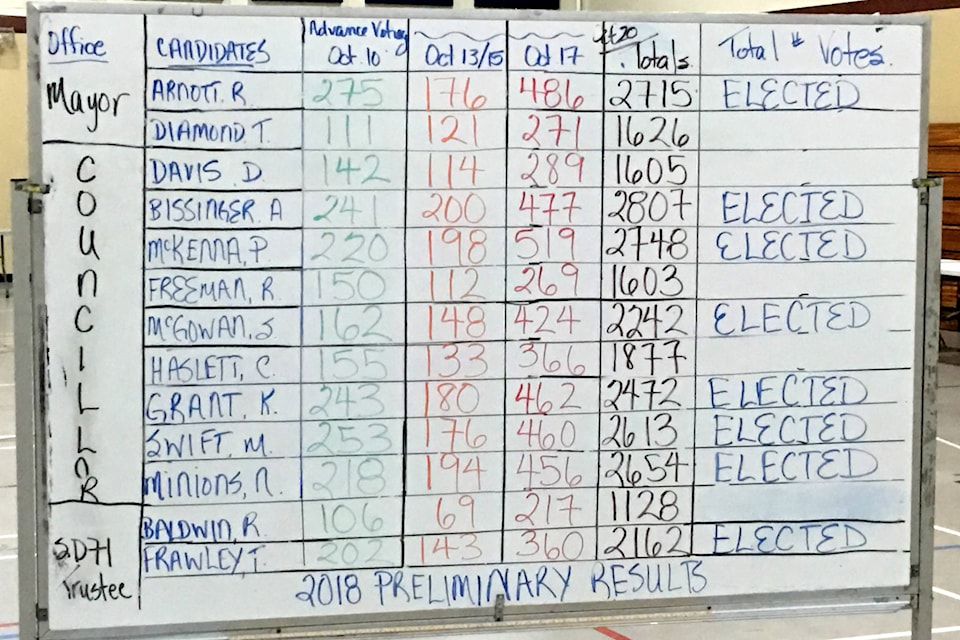 Office CANDIDATES Advance Voting Oct 10 Oct 13/15 Oct 17 Oct 20 Totals Total # Votes.
Mayor ARNOTT. R. 275 176 486 2715 ELECTED
DIAMOND T. 111 121 271 1626
COUNCILLOR
DAVIS D. 142 114 289 1605
BISSINGER. A 241 200 477 2807 ELECTED
McKENNA, P. 220 198 519 2748 ELECTED
FREEMAN, R 150 112 269 1603
McGOWAN, S 162 148 424 2242 ELECTED
HASLETT, C. 155 133 366 1877
GRANT, K. 243 180 462 2472 ELECTED
SWIFT, M. 253 176 460 2613 ELECTED
MINIONS, N. 218 194 456 2654 ELECTED
SD71 Trustee
BALDWIN, R. 106 69 217 1128
FRAWLEY, T. 202 143 360 2162 ELECTED
2018 PRELIMINARY RESULTS